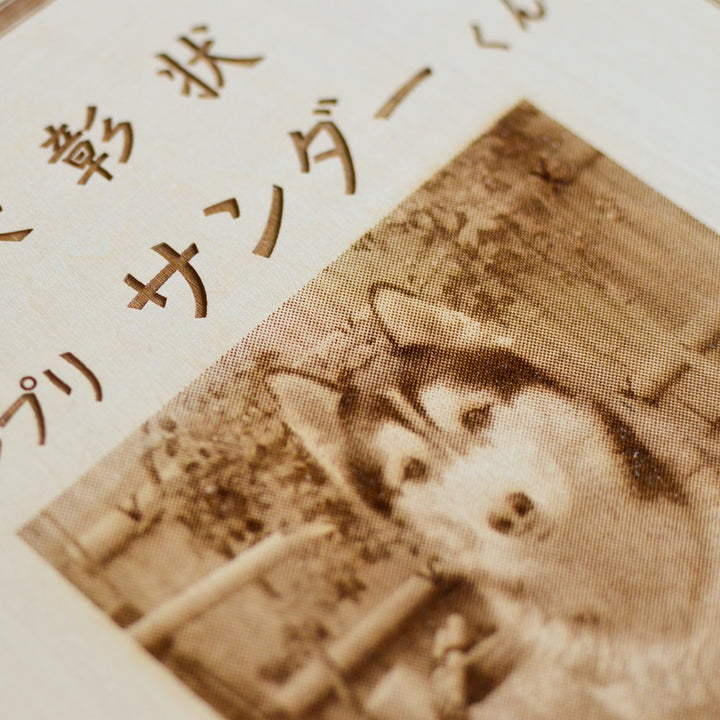 彰状
サンダーくん
プリ